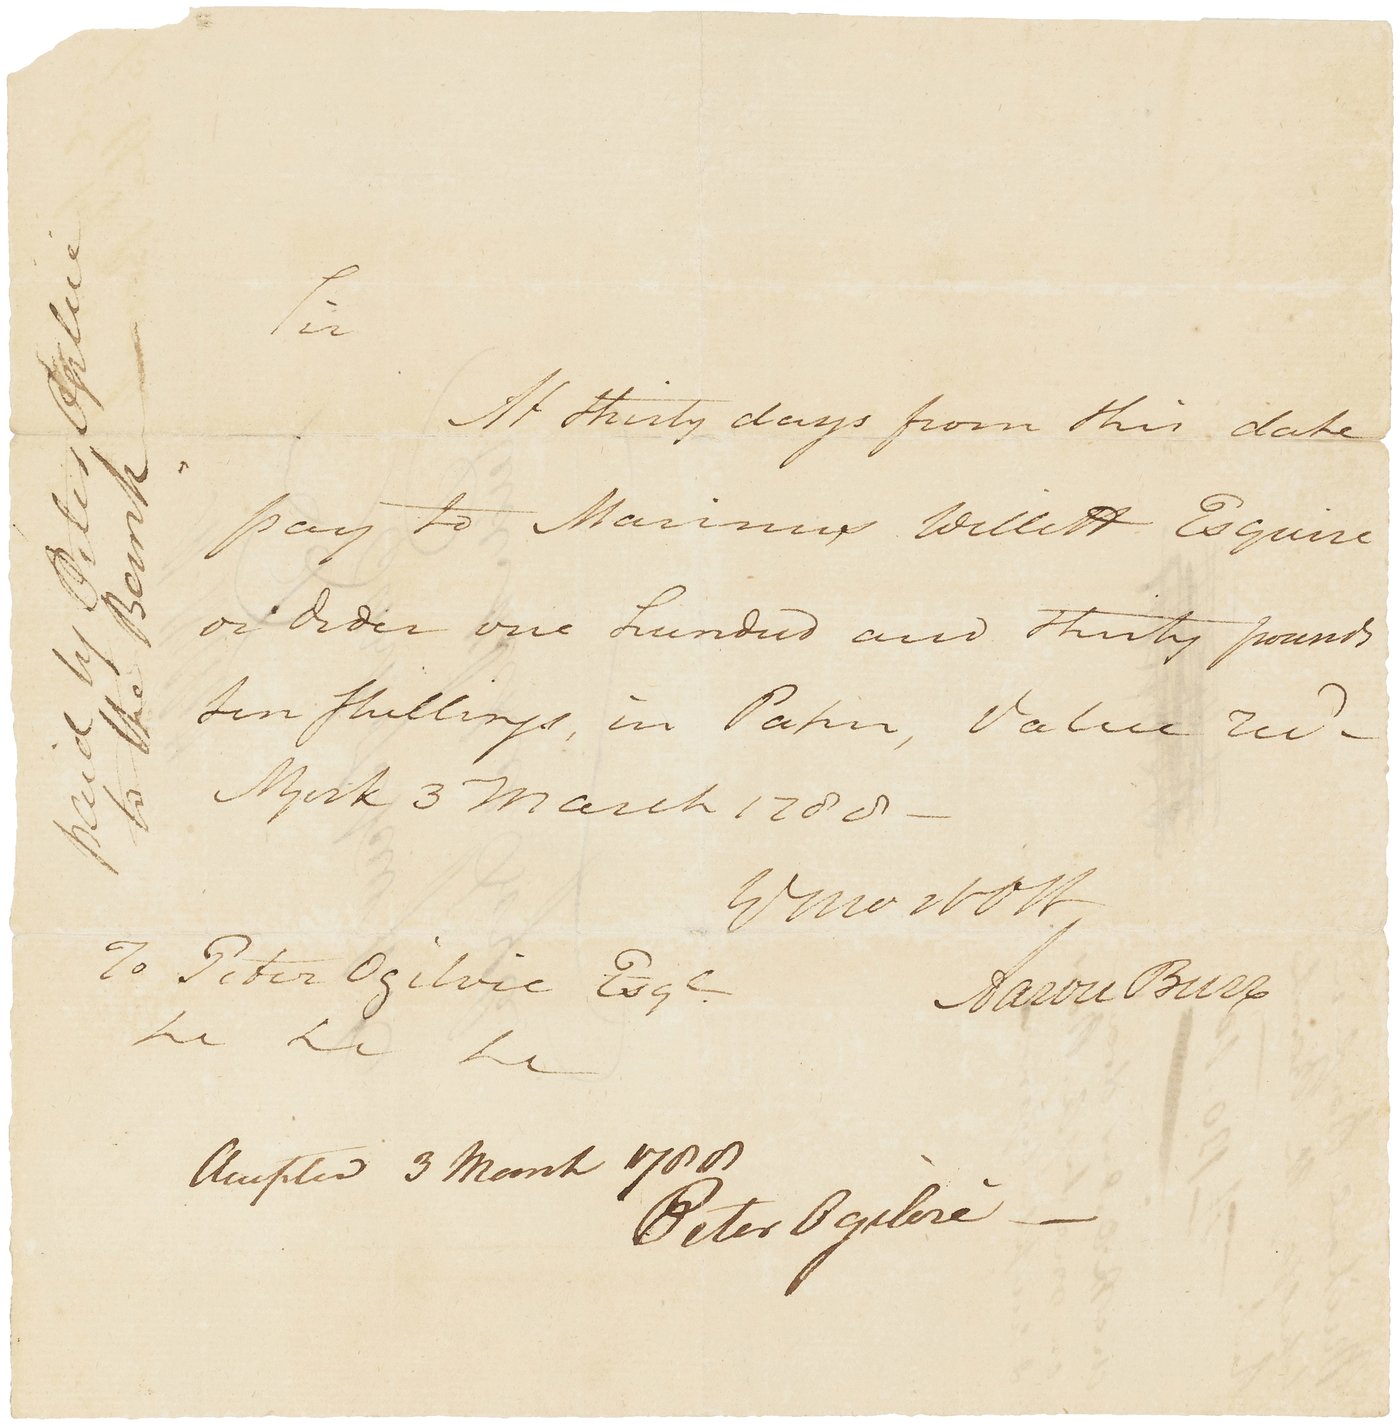 Sir
At thirty days from this date
pay to Marinus Willett Esquire
or Order one hundred and thirty pounds
ten Shillings, in Paper, Value recd -
NYork 3 March 1788 -
Aaron Burr
To Peter Ogilvie Esqr.
Accepted 3 March 1788
Peter Ogilvie —
paid by Peter Ogilvie
to the Bank